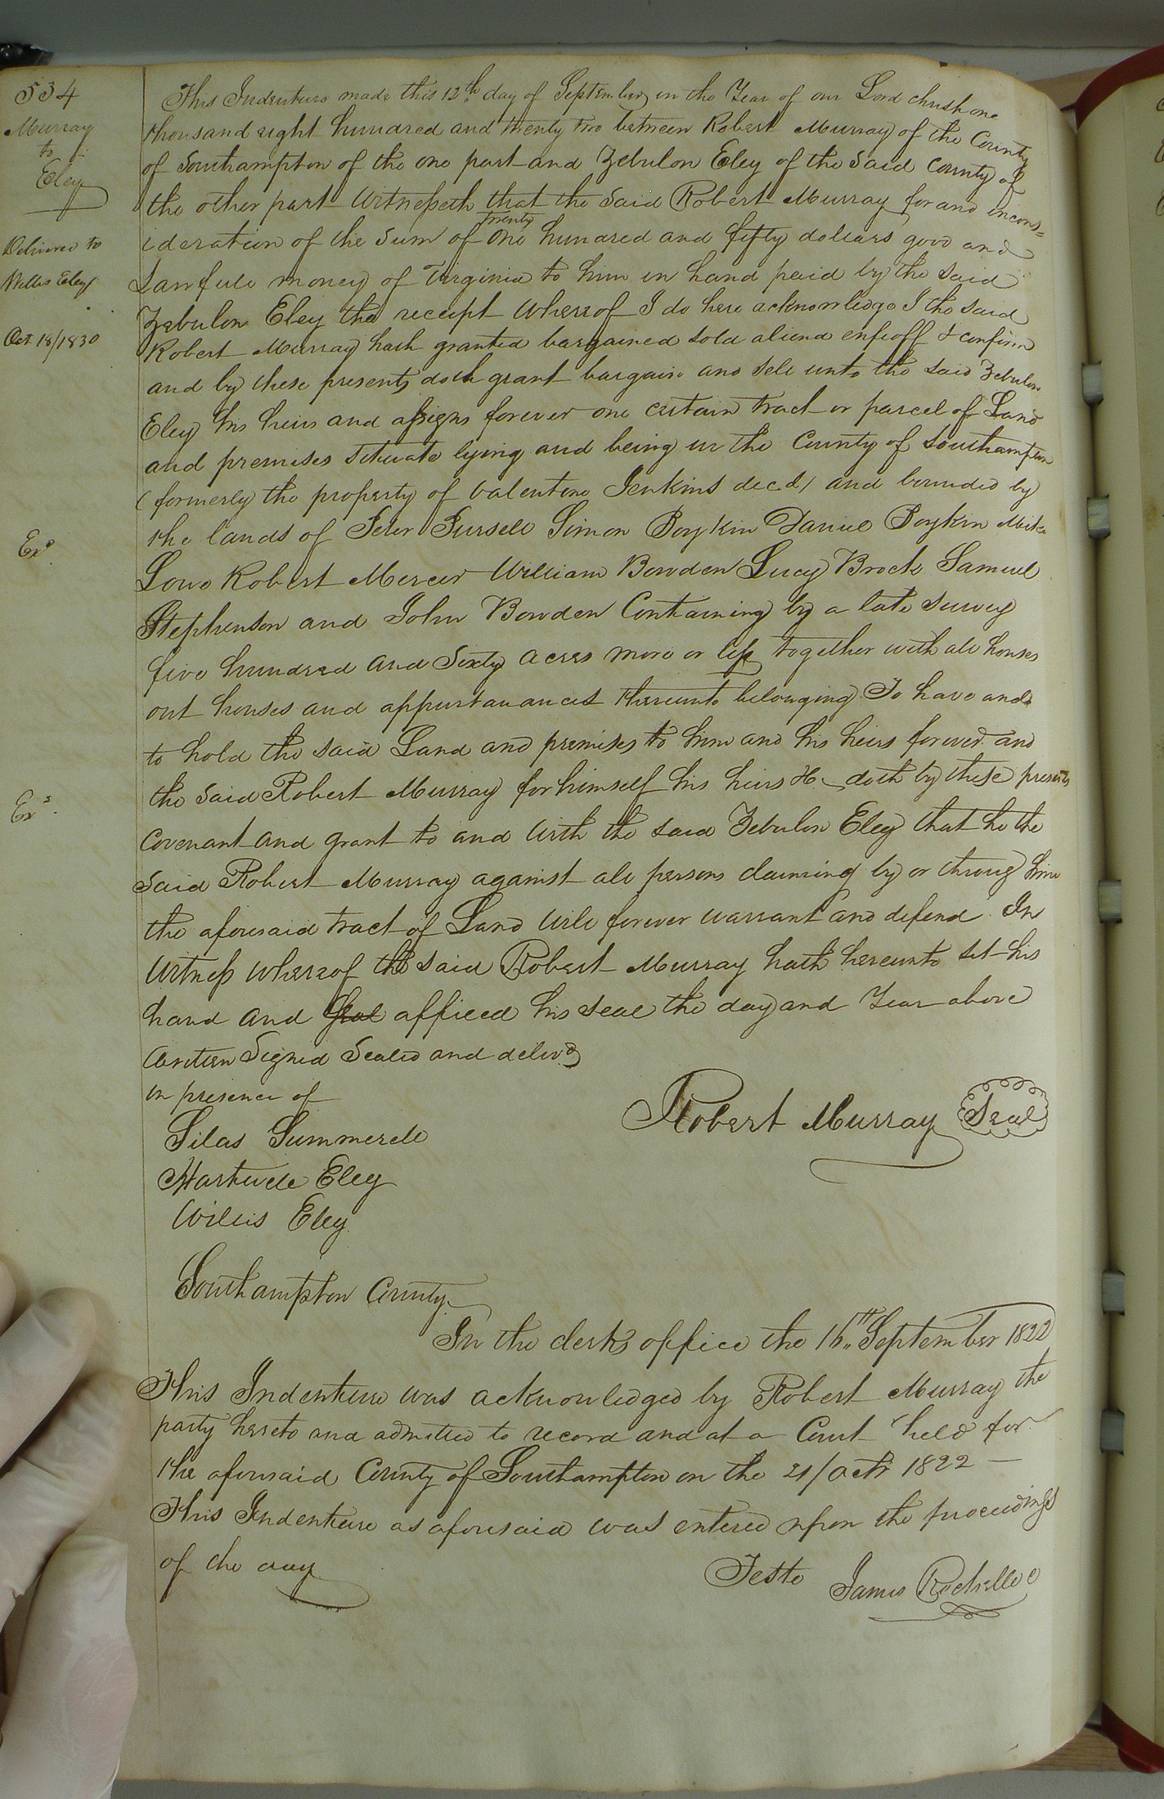 534
Murray
to
Eley
Delivered to
Willis Eley
Oct 18/1830
Exd
Exd
This Indenture made this 12th day of September in the Year of our Lord christ one
thousand eight hundred and twenty two between Robert Murray of the County
of Southampton of the one part and Zebulon Eley of the said County of
the other part Witnesseth that the said Robert Murray for and incons=
twenty
ideration of the sum of One hundred and fifty dollars good and
Lawfull money of Virginia to him in hand paid by the said
Zebulon Eley the receipt whereof I do here acknowledge I the said
Robert Murray hath granted bargained sold aliend enfeoff & confirm
and by these presents doth grant bargain and sell unto the said Zebulon
Eley his heirs and assigns forever one certain tract or parcel of Land
and premises situate lying and being in the County of Southampton
(formerly the property of Valentine Jenkins decd) and bounded by
the lands of Peter Pursell Simon Boykin Daniel Boykin
Lowe Robert Mercer William Bowden Lucy Brock Samuel
Stephenson and John Bowden Containing by a late survey
five hundred and Sixty acres more or less together with all houses
out houses and appurtanances thereunto belonging To have and
to hold the said Land and premises to him and his heirs forever and
the said Robert Murray for himself his heirs &c doth by these presents
covenant and grant to and with the said Zebulon Eley that he the
said Robert Murray against all persons claiming by or throug him
the aforesaid tract of Land will forever warrant and defend In
witness whereof the said Robert Murray hath hereunto set his
hand and seal affixed his seal the day and Year above
written Signed Sealed and delivd
in presence of
Robert Murray Seal
Silas Summerell
Hartwell Eley
Willis Eley
Southampton County
In the clerks office the 16th September 1822
This Indenture was acknowledged by Robert Murray the
party hereto and admitted to record and at a Court held for
the aforesaid County of Southampton on the 21/Octr 1822 —
This Indenture as aforesaid was entered upon the proceedings
of the day
Teste James Rochelle C